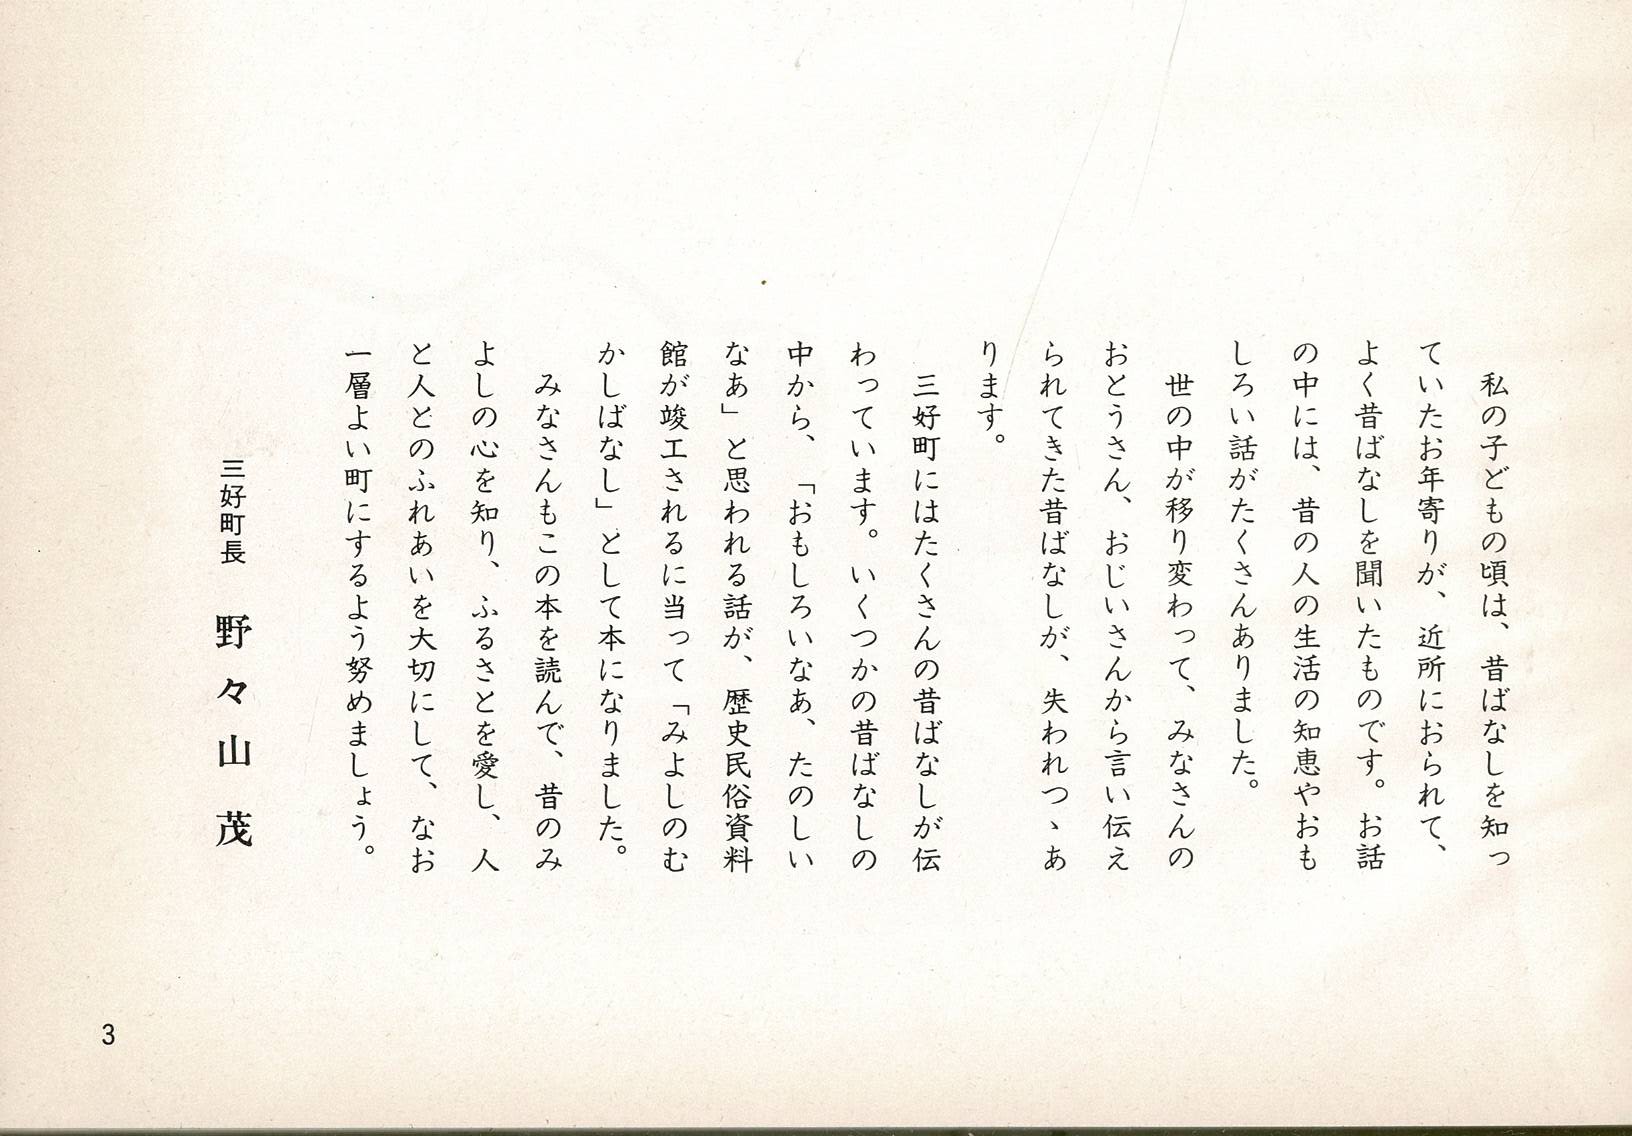 私の子どもの頃は、昔ばなしを知っ
ていたお年寄りが、近所におられて、
よく昔ばなしを聞いたものです。お話
の中には、昔の人の生活の知恵やおも
しろい話がたくさんありました。
　世の中が移り変わって、みなさんの
おとうさん、おじいさんから言い伝え
られてきた昔ばなしが、失われつゝあ
ります。
　三好町にはたくさんの昔ばなしが伝
わっています。いくつかの昔ばなしの
中から、「おもしろいなあ、たのしい
なあ」と思われる話が、歴史民俗資料
館が竣工されるに当って「みよしのむ
かしばなし」として本になりました。
　みなさんもこの本を読んで、昔のみ
よしの心を知り、ふるさとを愛し、人
と人とのふれあいを大切にして、なお
一層よい町にするよう努めましょう。
三好町長　野々山　茂
3